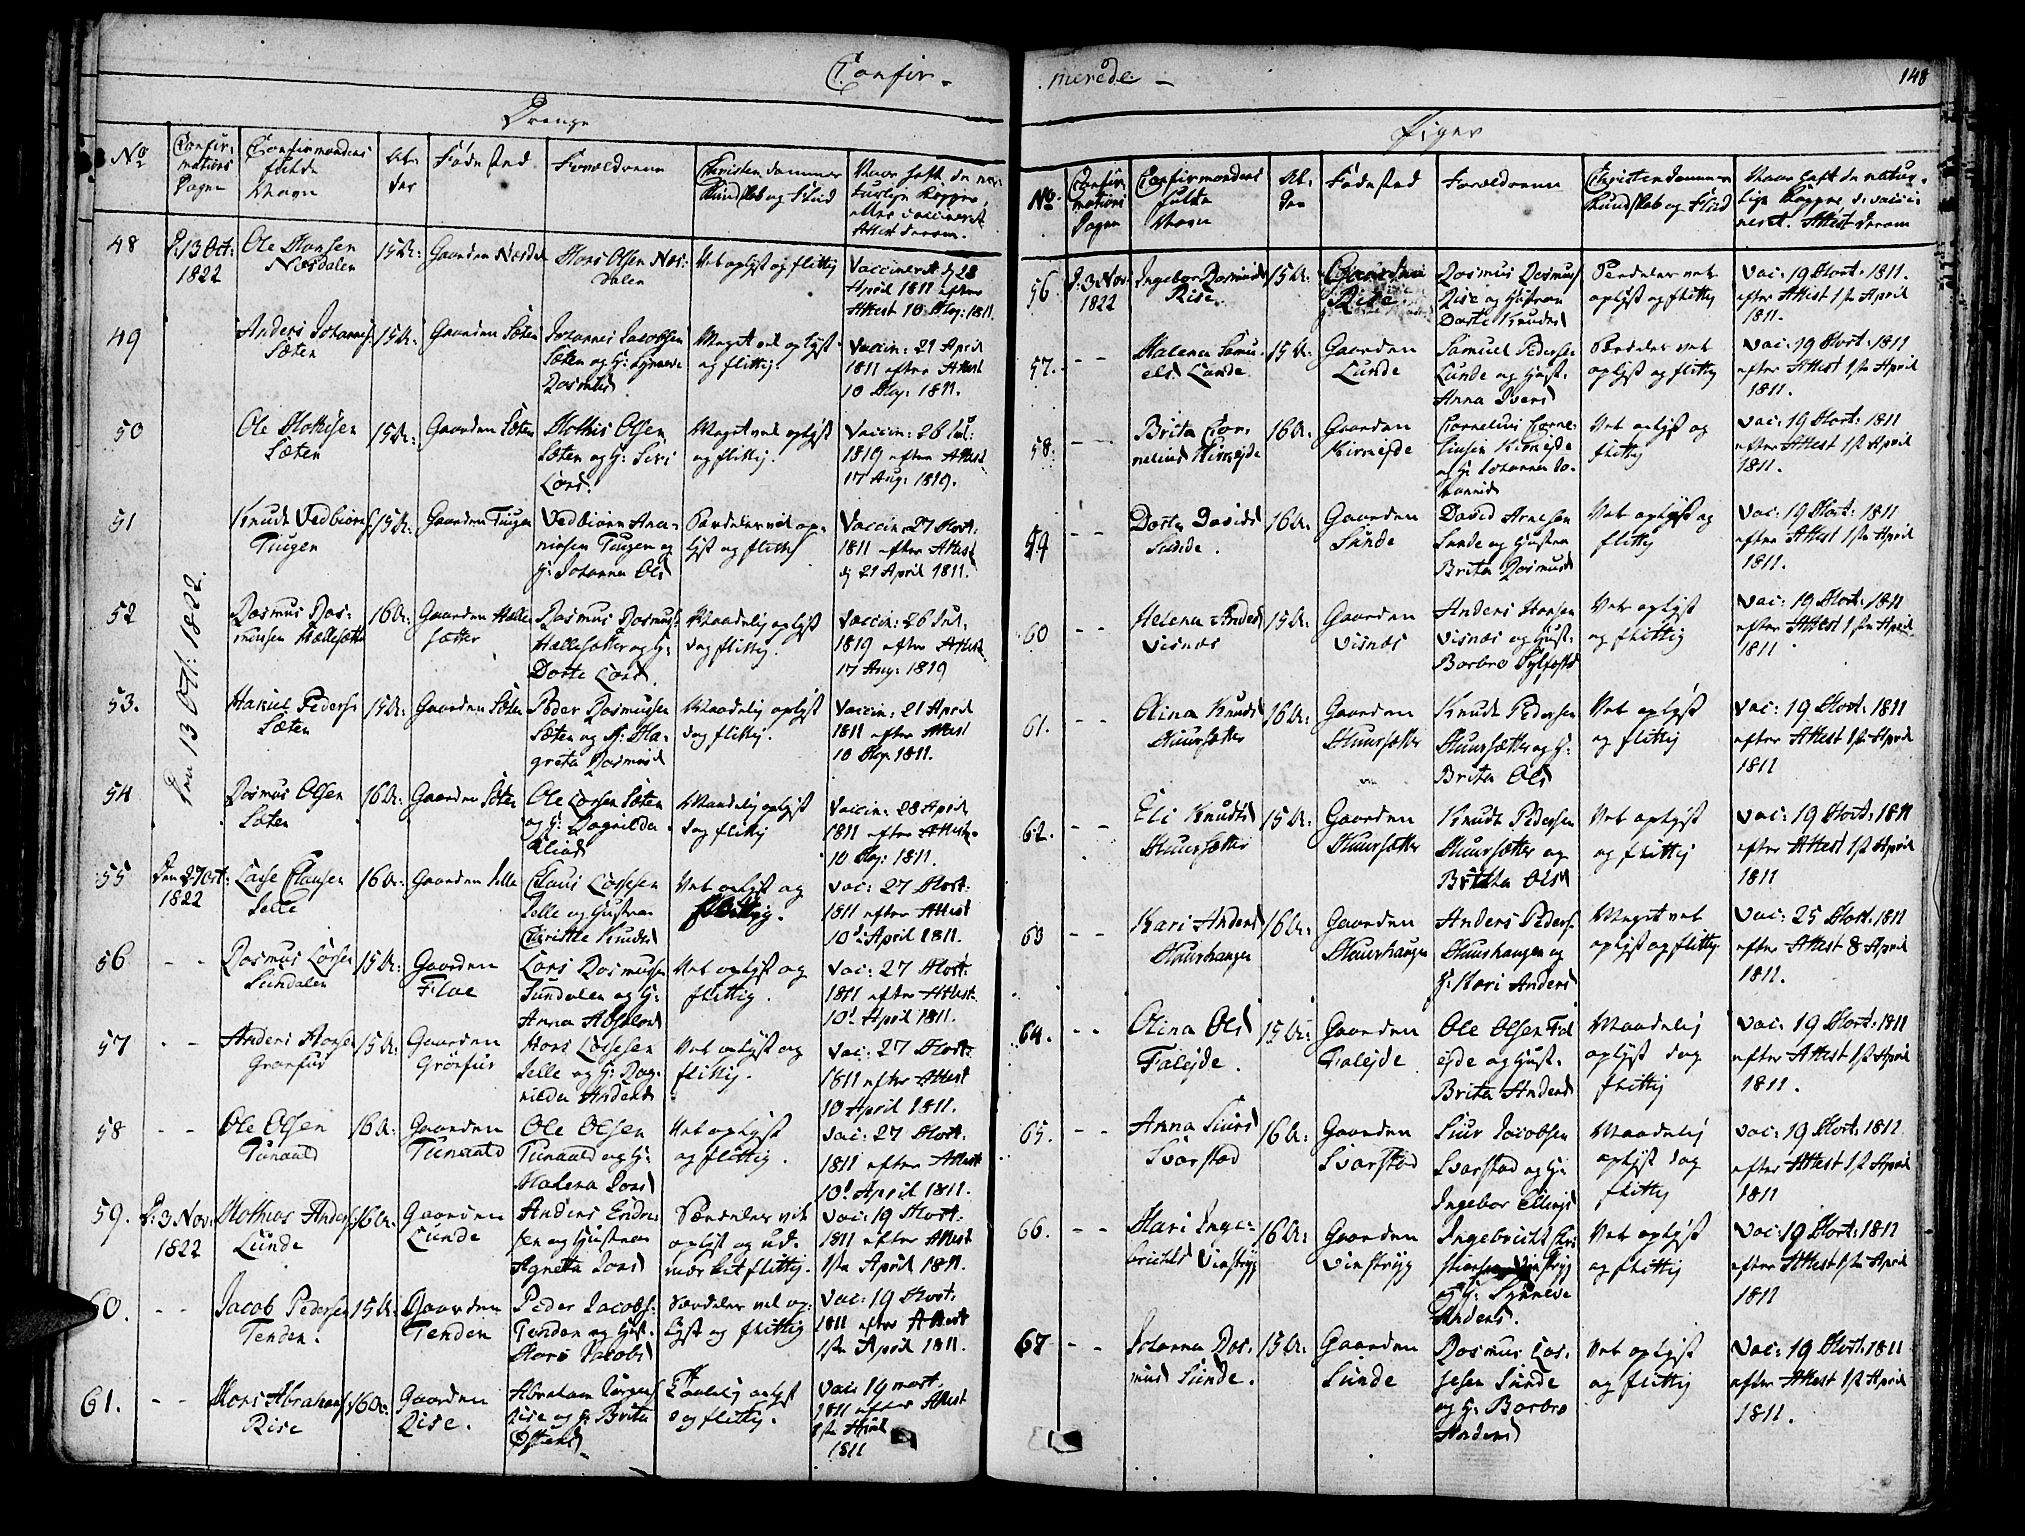 Confir-
merede -
148
Drenge
No
Confir-
mations
Dagen
Confirmandens
fulde
Navn
Al-
der
Fødested
Forældrene
Christendommes
Kundskab og Flid
Naar haft de na-
turlige Kopper
eller vaccineret
Attest derom.
48
D. 13 Oct:
1822
Ole Hansen
Nesdalen
15 A:
Gaarden Nesdal
Hans Olsen Nes-
dalen
Vel oplyst og flittig
Vaccineret d. 28
April 1811 efter
Attest 10 May: 1811.
Den 13 Oct: 1822.
49
Anders Johannes
Sæten
15 A:
Gaarden Sæten
Johannes Jacobsen
Sæten og H: Synneve
Rasmusd
Meget vel oplyst
og flittig.
Vaccin: 21 April
1811 efter Attest
10 May: 1811.
50
Ole Mathisen
Sæten
15 A:
Gaarden Sæten
Mathis Olsen
Sæten og H: Siri
Larsd.
Meget vel oplyst
og flittig.
Vaccin: 26 Jul:
1819 efter Attest
17 Aug: 1819.
51
Knud Vedbiørns
Tiugen
15 A:
Gaarden Tiugen
Vedbiørn Ana-
niesen Tiugen og
H: Johanna Olsd
Særdeles vel op-
lyst og flittig
Vaccin: 27 Mart:
1811 efter Attest
d. 21 April 1811.
52
Rasmus Ras-
musen Hællesætter
16 A:
Gaarden Hælle
sætter
Rasmus Rasmus
Hællesætter og H:
Dorte Larsd.
Maadelig oplyst
dog flittig.
Vaccin: 26 Jul:
1819 efter Attest
17 Aug: 1819
53.
Peders
Sæten
15 A:
Gaarden Sæten
Peder Rasmusen
Sæten og H: Ma-
greta Rasmusd
Maadelig oplyst
dog flittig.
Vaccin: 21 April
1811 efter Attest
10 May. 1811.
54
Rasmus Olsen
Sæten
16 A:
Gaarden Sæten
Ole Larsen Sæten
og H: Ragnilda
Eliasd
Maadelig oplyst
dog flittig
Vaccin: 28 April
1811 efter Attest
10 May: 1811.
55
Den 27 Oct:
1822
Lasse Clausen
Selle
16 A:
Gaarden Selle
Claus Lassesen
Selle og Hustrue
Christie Knudsd
Vel oplyst og
flittig.
Vac: 27 Mart:
1811 efter Attest
10: April 1811.
56
- -
Rasmus Larsen
Sundalen
15 A:
Gaarden
Floe
Lars Rasmusen
Sundalen og H:
Anna Absalonsd
Vel oplyst og
flittig.
Vac: 27 Mart:
1811 efter Attest
10: April 1811.
57
- -
Anders Hansen
Grønfur
15 A:
Gaarden
Grønfur
Hans Lassesen
Selle og H: Rag-
nilda Andersd
Vel oplyst og
flittig.
Vac: 27 Mart:
1811 efter Attest
10 April 1811.
58
- -
Ole Olsen
Tunvald
16 A:
Gaarden
Tunvald
Ole Olsen
Tunvald og H:
Malena Larsd
Vel oplyst
og flittig.
Vac: 27 Mart:
1811 efter Attest
10: April 1811.
59.
D: 3 Nov.
1822
Mathias Anders
Lunde
16 A:
Gaarden
Lunde
Anders Endre-
sen og Hustrue
Agneta Larsd
Særdeles vel
oplyst og ud-
mærket flittig.
Vac: 19 Mart:
1811 efter Attest
1ste April 1811.
60.
- -
Jacob Pedersen
Tenden.
15 A:
Gaarden
Tenden
Peder Jacobs:
Tenden og Hust:
Mari Jacobsd
Særdeles vel op-
lyst og flittig
Vac: 19 Mart:
1811 efter Attest
1ste April 1811.
61.
- -
Mons Abrahams
Rise
16 A:
Gaarden
Rise.
Abraham Jørgens
Rise og H: Brita
Østensd
Taalelig oplyst
og flittig.
Vac: 19 mart.
1811 efter Attest
1ste April
1811
Piger
No.
Confir-
mations
Dagen
Confirmandens
fulde
Navn
Al-
der
Fødested
Forældrene
Christendommes
Kundskab og Flid
Naar haft de natur-
lige Kopper el. vacci-
neret. Attest derom
56
D. 3 Nov.
1822
Ingebor Rasmusd
Rise.
15 A:
Gaarden
Rise
Rasmus Rasmus
Rise og Hustrue
Dorte Knudsd
Særdeles vel
oplyst og flittig
Vac: 19 Mart: 1811.
efter Attest 1ste April
1811.
57.
- -
Malena Samu-
elsd. Lunde.
15 A:
Gaarden
Lunde
Samuel Pedersen
Lunde og Hust:
Anna Iversd
Særdeles vel
oplyst og flittig
Vac: 19 Mart: 1811
efter Attest 1ste April
1811.
58.
- -
Brita Cor-
neliusd Kirkejde
16 A:
Gaarden
Kirkejde
Cornelius Corne-
liusen Kirkejde
og H: Johanna Jo-
hannisd
Vel oplyst og
flittig
Vac: 19 Mart: 1811
efter Attest 1ste April
1811.
59
- -
Dorte Davidsd
Sunde.
16 A:
Gaarden
Sunde
David Arnesen
Sunde og Hustrue
Brita Rasmusd
Vel oplyst og
flittig
Vac: 19 Mart: 1811
efter Attest 1ste April
1811.
60
- -
Helena Andersd
Visnes
15 A:
Gaarden
Visnes
Anders Hansen
Visnes og Hust:
Barbro Sylfestsd
Vel oplyst
og flittig
Vac: 19 Mart: 1811
efter Attest 1ste April
1811.
61.
- -
Olina Knudsd
Muursætter
16 A:
Gaarden
Muursætter
Knud Pedersen
Muursætter og H:
Brita Olsd
Vel oplyst
og flittig
Vac: 19 Mart: 1811
efter Attest 1ste April
1811
62.
- -
Eli Knudsd
Muursætter
15 A:
Gaarden
Muursætter
Knud Pedersen
Muursætter og
Britta Olsd
Vel oplyst
og flittig
Vac: 19 Mart: 1811
efter Attest 1ste April
1811
63
- -
Kari Andersd
Muurhaugen
16 A:
Gaarden
Muurhaugen
Anders Peders:
Muurhaugen og
H: Mari Andersd
Meget vel
oplyst og flittig
Vac: 25 Mart: 1811
efter Attest 8 April
1811.
64.
- -
Olina Olsd
Falejde.
15 A:
Gaarden
Falejde
Ole Olsen Fal-
ejde og Hust:
Brita Andersd
Maadelig
oplyst dog
flittig
Vac: 19 Mart: 1811
efter Attest 1ste April
1811.
65.
- -
Anna Siursd
Svarstad
16 A:
Gaarden
Svarstad
Siur Jacobsen
Svarstad og H:
Ingebor Ellingsd
Maadelig
oplyst dog
flittig
Vac: 19 Mart: 1811.
efter Attest 1ste April
1811
66.
- -
Mari Inge-
brichtsd Vinstryg
16 A:
Gaarden
Vinstryg
Ingebricht Chri-
stiansen Vinstryg
og H: Synneve
Andersd.
Vel oplyst
og flittig
Vac: 19 Mart: 1811
efter Attest 1ste April
1811
67
- -
Johanna Ras-
musd Sunde.
15 A:
Gaarden
Sunde
Rasmus Las-
sesen Sunde
og H: Barbro
Andersd
Vel oplyst
og flittig
Vac: 19 Mart: 1811
efter Attest 1ste April
1811.